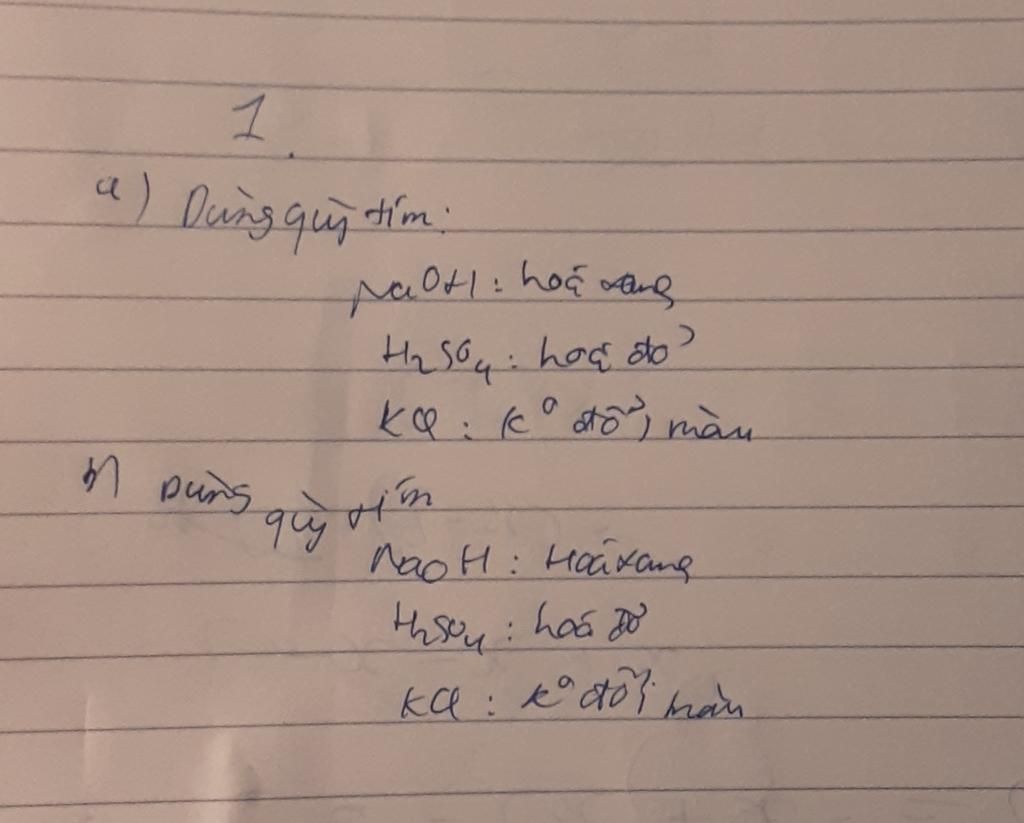 1.
a) Dùng quỳ tím:
NaOH: hoá xang
H2SO4: hoá đỏ
KCl: k° đổi màu
b) Dùng quỳ tím
NaOH: Hoá xang
H2SO4: hoá đỏ
KCl: k° đổi màu